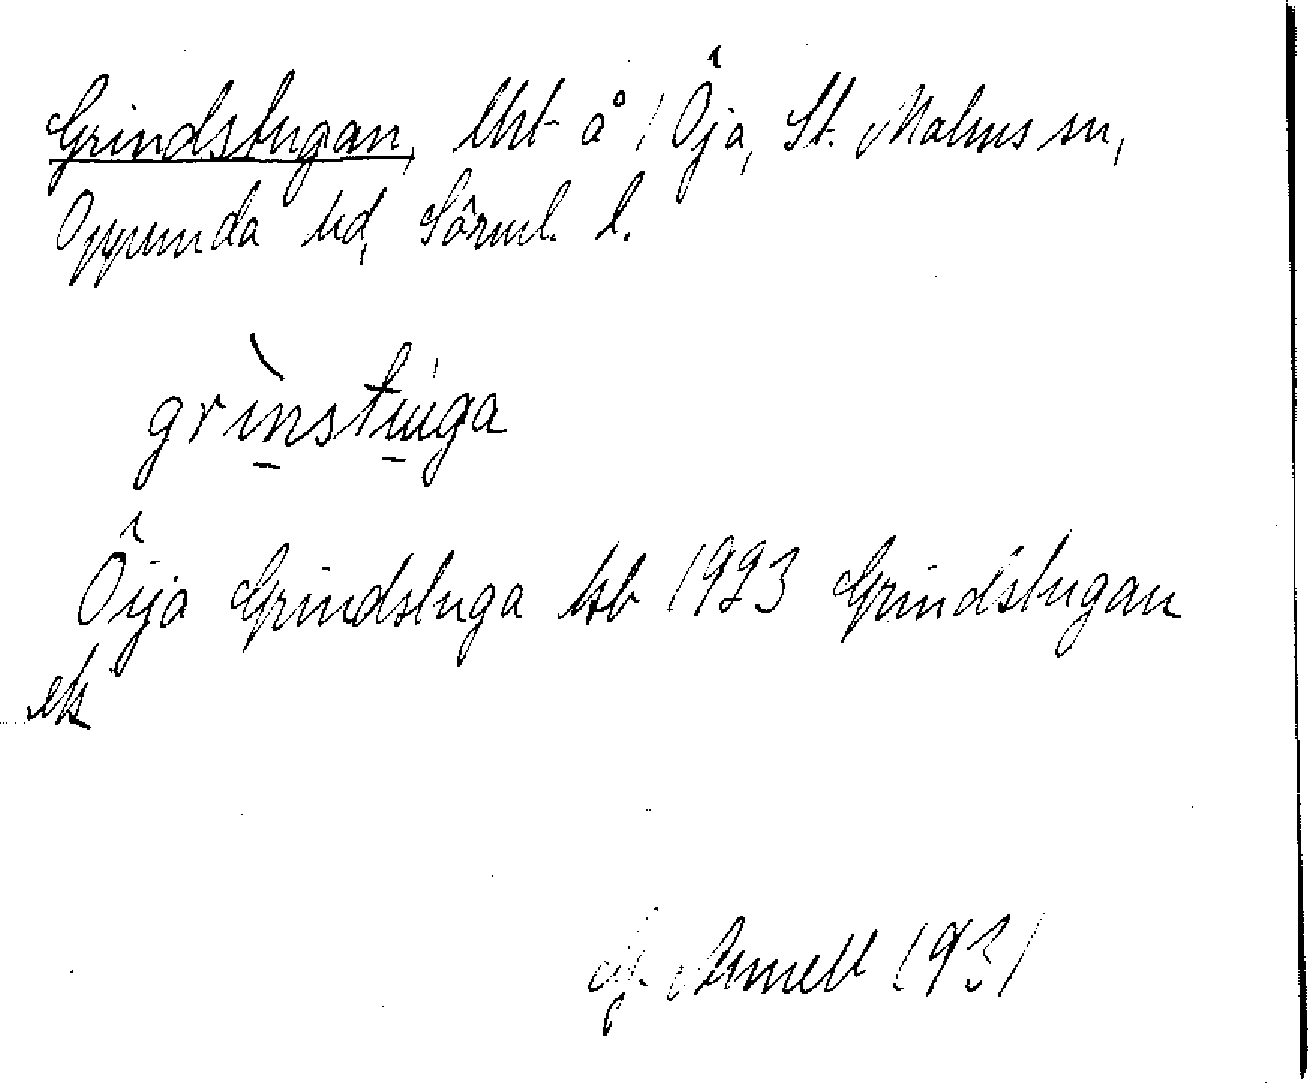 Grindstugan, lht å 1 Öja, St. Malms sn,
Oppunda hd, Sörml. l.
grìnstuga
Öija Grindstuga hb 1923 Grindstugan
ek
Arnell 1931